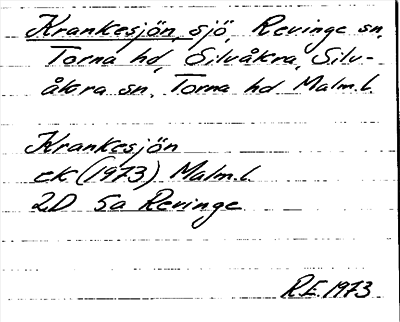 Krankesjön, sjö, Revinge sn,
Torna hd, Silvåkra, Silv-
åkra sn, Torna hd Malm.l.
Krankesjön
ek (1973) Malm.l.
2D 5a Revinge
R.E. 1973